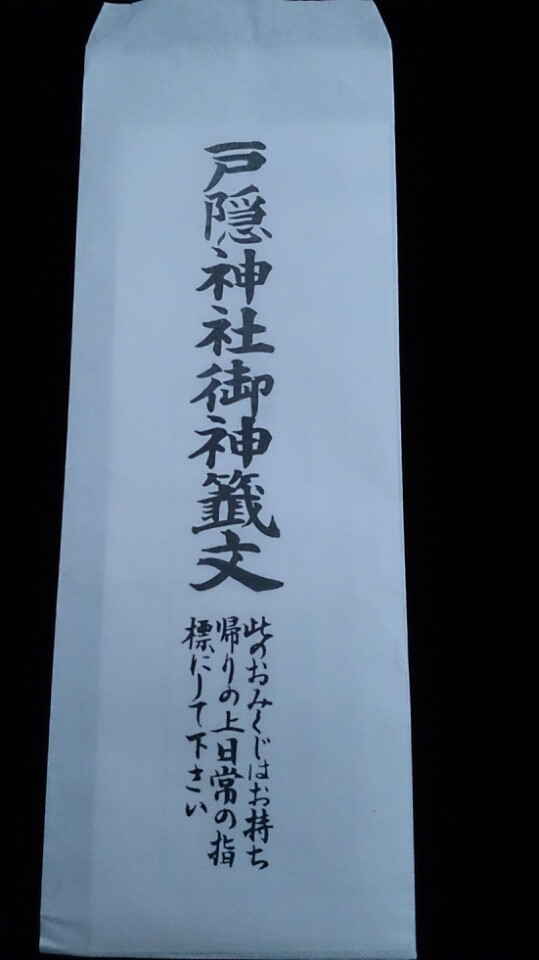 戸隠神社御神籤文
此のおみくじはお持ち
帰りの上日常の指
標にして下さい